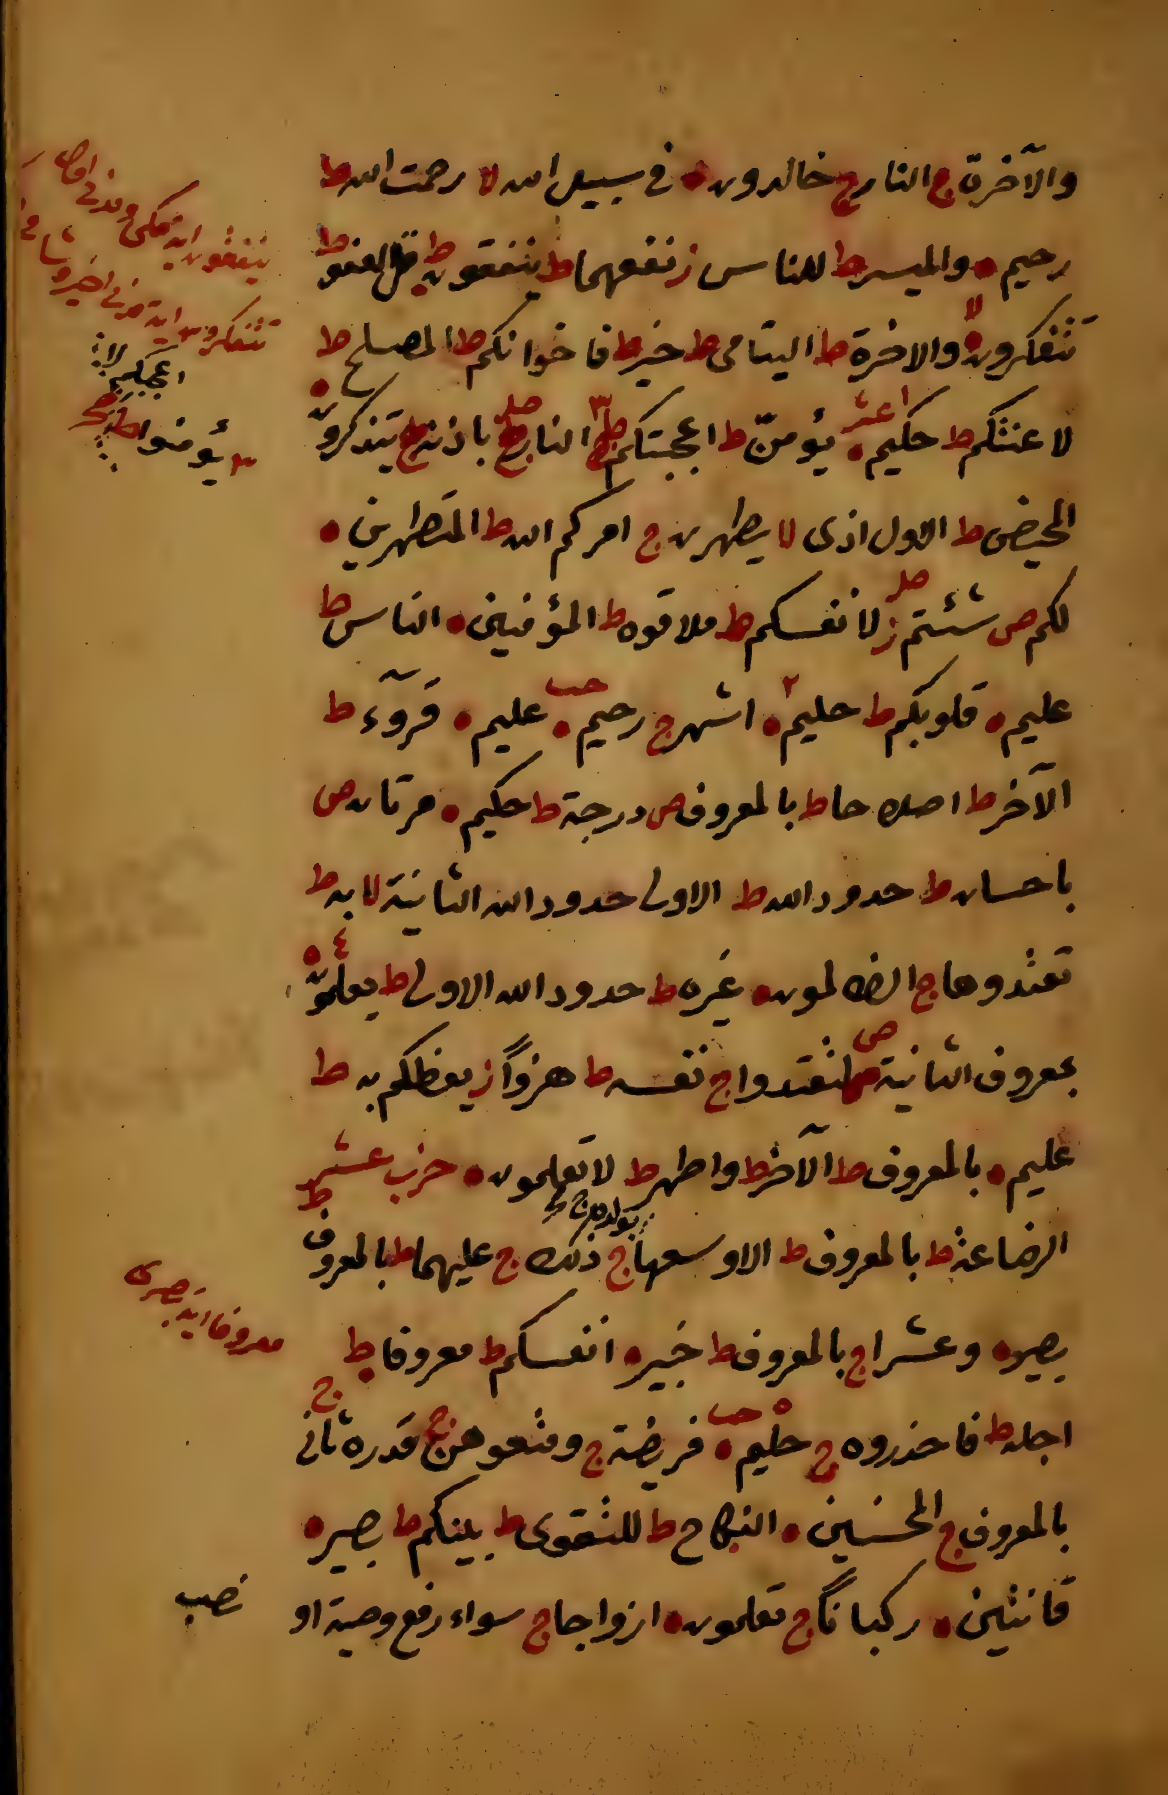 والآخرة ج النار ج خالدون ه في سبيل الله لا رحمت الله ط
رحيم ه والميسر ط للناس ز نفعهما ط ينفقون ط قل العفو ط
تتفكرون لا والاخرة ط اليتامى ط خير ط فاخوانكم ط المصلح ط
لاعنتكم ط حكيم ه اعشر يؤمنّ ط اعجبتكم ط النار ج صلے باذنه ج يتذكرون ه
المحيض ط الاول اذى لا يطهرن ج امركم الله ط المتطهرين ه
لكم ص شئتم ز صلے لانفسكم ط ملاقوه ط المؤمنين ه الناس ط
عليم ه قلوبكم ط حليم ه ٢ اشهر ج رحيم ه حب عليم ه قروٓء ط
الآخر ط اصلاحا ط بالمعروف ص درجة ط حكيم ه مرتان ص
باحسان ط حدود الله ط الاولى حدود الله الثانية لا به ط
تعتدوها ج الظالمون ه غيره ط حدود الله الاولى ط يعلمون ه ٤
بمعروف الثانية ص لتعتدوا ج نفسه ط هزواً ز يعظكم به ط
عليم ه بالمعروف ط الآخر ط واطهر ط لا تعلمون ه حزب عشر
الرضاعة ط بالمعروف ط الا وسعها ج بولده ج ط ذلك ج عليهما ط بالمعروف ط
بصير ه وعشرا ج بالمعروف ط خبير ه انفسكم ط معروفا ط ج
اجله ط فاحذروه ج حليم ه ٥ حب فريضة ج ومتعوهن ج قدره ثاني ج
بالمعروف ج المحسنين ه النكاح ط للتقوى ط بينكم ط بصير ه
قانتين ه ركباناً ج تعلمون ه ازواجا ج سواء رفع وصية او
نصب
ينفقون اية مكي ومدني
تتفكرون اية مدني اخير و
اعجبكم لا
يؤمنوا ط
معروفا اية بصرى